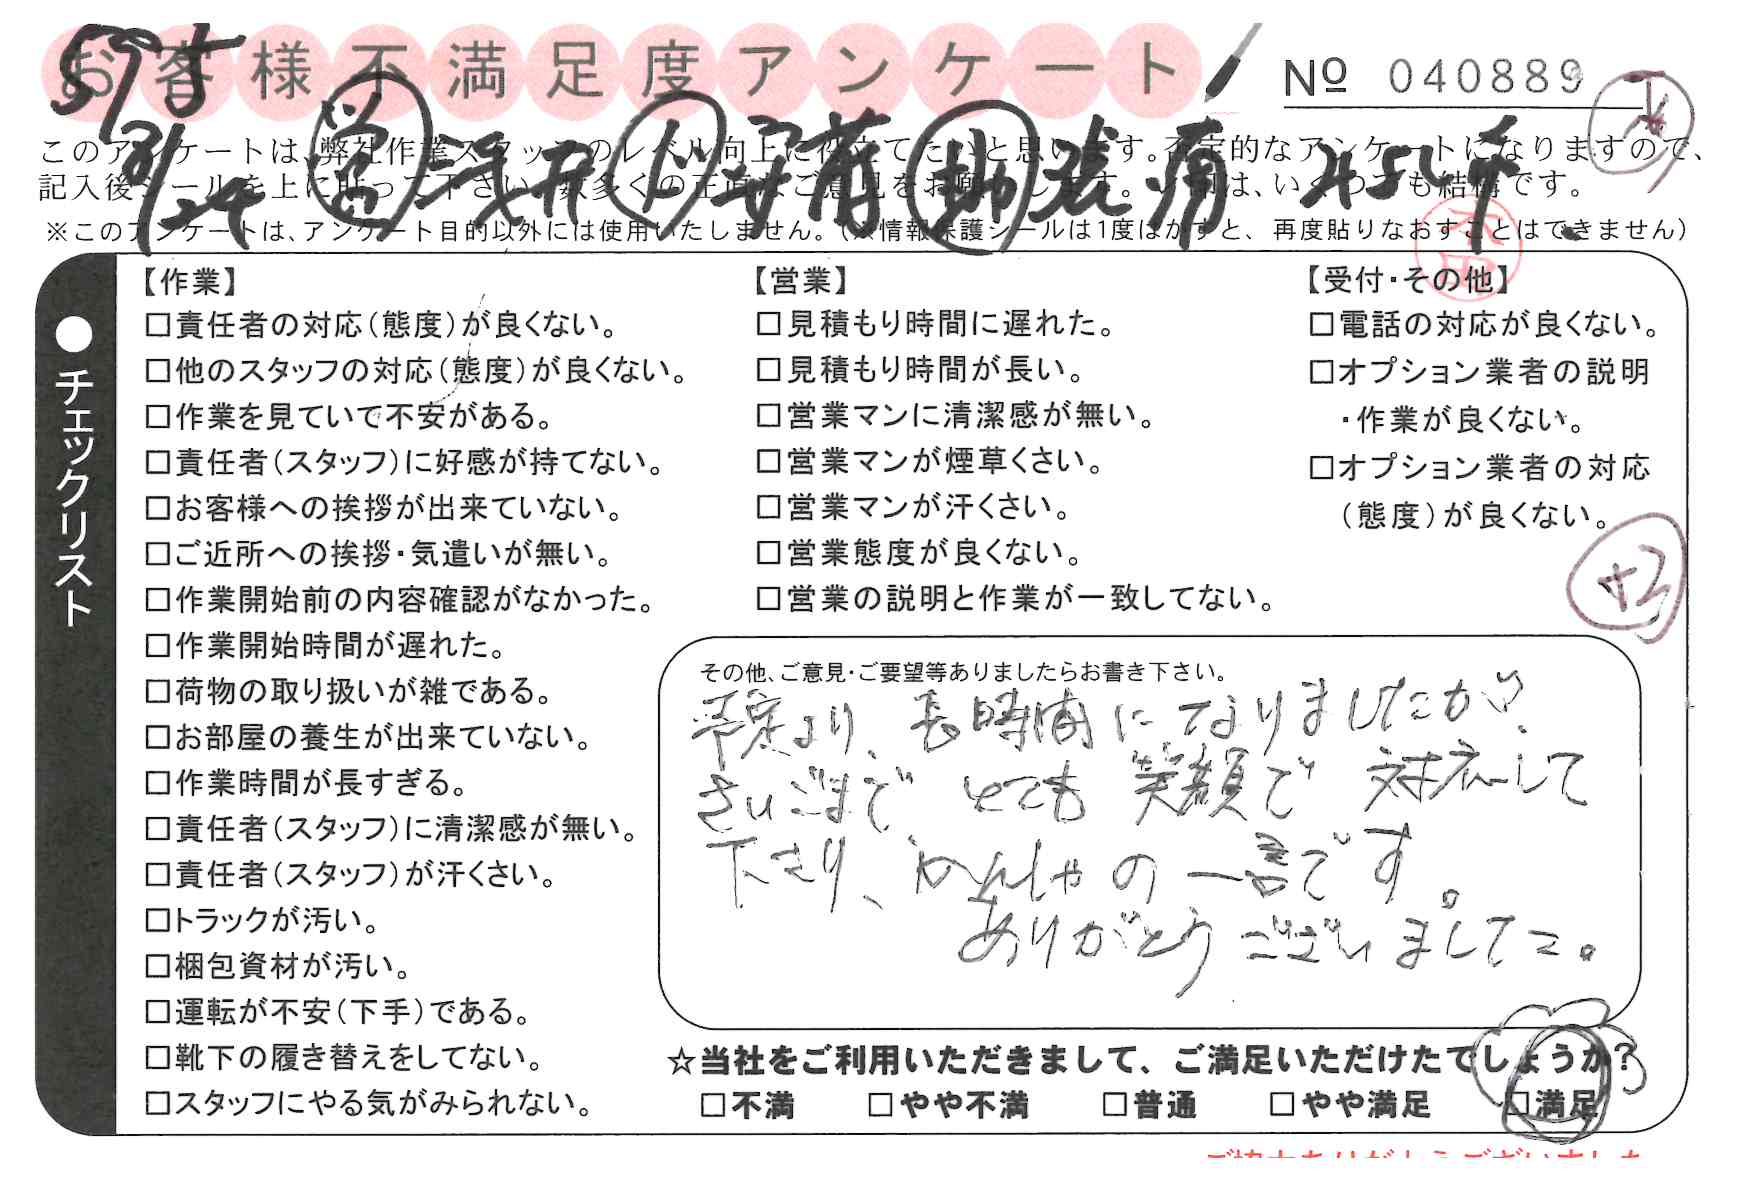 お客様不満足度アンケート
Nº 040889
このアンケートは、弊社作業スタッフのレベル向上に役立てたいと思います。否定的なアンケートになりますので、
記入後シールを上に貼って下さい。数多くの正直なご意見をお願いします。レ印は、いくつでも結構です。
※このアンケートは、アンケート目的以外には使用いたしません。(※情報保護シールは1度はがすと、再度貼りなおすことはできません)
●チェックリスト
【作業】
□責任者の対応(態度)が良くない。
□他のスタッフの対応(態度)が良くない。
□作業を見ていて不安がある。
□責任者(スタッフ)に好感が持てない。
□お客様への挨拶が出来ていない。
□ご近所への挨拶・気遣いが無い。
□作業開始前の内容確認がなかった。
□作業開始時間が遅れた。
□荷物の取り扱いが雑である。
□お部屋の養生が出来ていない。
□作業時間が長すぎる。
□責任者(スタッフ)に清潔感が無い。
□責任者(スタッフ)が汗くさい。
□トラックが汚い。
□梱包資材が汚い。
□運転が不安(下手)である。
□靴下の履き替えをしてない。
□スタッフにやる気がみられない。
【営業】
□見積もり時間に遅れた。
□見積もり時間が長い。
□営業マンに清潔感が無い。
□営業マンが煙草くさい。
□営業マンが汗くさい。
□営業態度が良くない。
□営業の説明と作業が一致してない。
【受付・その他】
□電話の対応が良くない。
□オプション業者の説明
・作業が良くない。
□オプション業者の対応
(態度)が良くない。
+3
その他、ご意見・ご要望等ありましたらお書き下さい。
予定より、長時間になりましたが、
さいごまで とても 笑顔で 対応して
下さり、かんしゃの一言です。
ありがとうございました。
☆当社をご利用いただきまして、ご満足いただけたでしょうか?
□不満 □やや不満 □普通 □やや満足 □満足
ご協力ありがとうございました